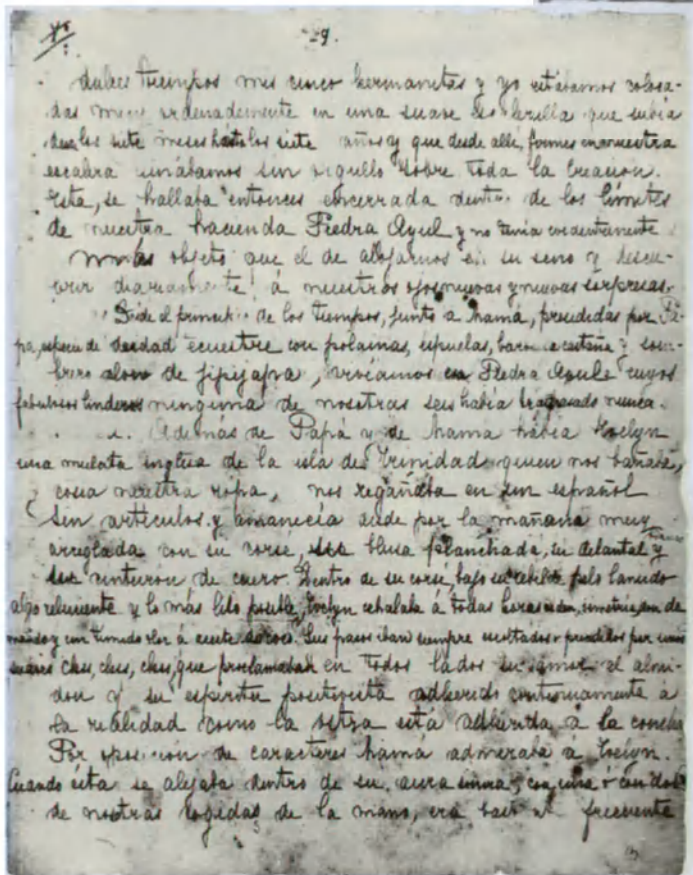 29.
dulces tiempos mis cinco hermanitas y yo estábamos coloca-
das muy ordenadamente en una suave que subía
desde los siete meses hasta los siete años y que desde allí,
escalera sin orgullo sobre toda la creacion.
Esta, se hallaba entonces encerrada dentro de los límites
de nuestra hacienda Piedra Azul y no tenia evidentemente
más objeto que el de alojarnos en su seno y descu-
brir diariamente á nuestros ojos nuevas y nuevas sorpresas.
Desde el principio de los tiempos, junto a Mamá, presididas por Pa-
pa, especie de deidad ecuestre con polainas, espuelas, barba castaña y som-
brero alon de jipijapa, viviamos en Piedra Azul cuyos
fabulosos linderos ninguna de nosotras seis habia traspasado nunca.
Además de Papá y de Mama habia Evelyn
una mulata inglesa de la isla de Trinidad quien nos bañaba,
cosia nuestra ropa, nos regañaba en un español
sin artículos y amanecía desde por la mañana muy
arreglada con su corsé, su blusa planchada, su delantal y
su cinturon de cuero. Dentro de su corsé, bajo su rebelde pelo lanudo
algo reluciente y lo más liso posible, Evelyn exhalaba á todas horas orden, simetría, don de
mando y un tímido olor á aceite de coco. Sus pasos iban siempre escoltados o precedidos por unos
suaves chss, chss, chss, que proclamaban en todos lados su amor al almi-
don y su espíritu positivista adherido continuamente á
la realidad como la ostra está adherida á la concha
Por oposicion de caracteres Mama admiraba a Evelyn.
Cuando esta se alejaba dentro de su aura sonora, con una o con dos
de nosotras cogidas de la mano, era frecuente